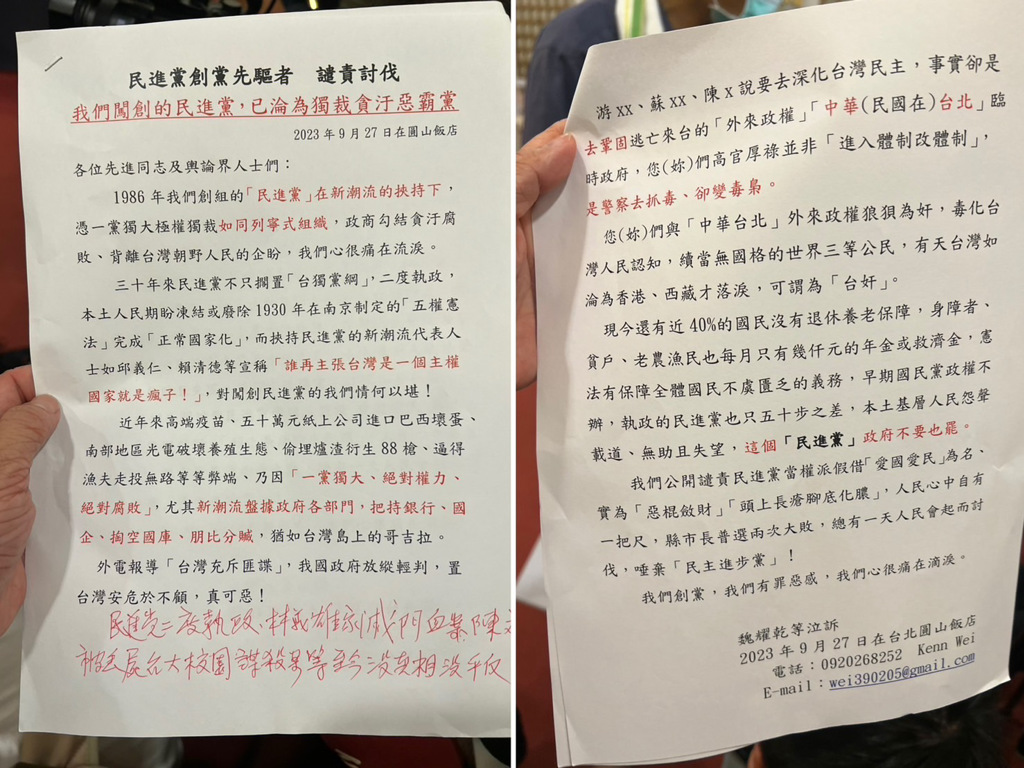 民進黨創黨先驅者　譴責討伐
我們闖創的民進黨，已淪為獨裁貪汙惡霸黨
2023年9月27日在圓山飯店
各位先進同志及輿論界人士們：
1986年我們創組的「民進黨」在新潮流的挾持下，
憑一黨獨大極權獨裁如同列寧式組織，政商勾結貪汙腐
敗、背離台灣朝野人民的企盼，我們心很痛在流淚。
三十年來民進黨不只擱置「台獨黨綱」，二度執政，
本土人民期盼凍結或廢除1930年在南京制定的「五權憲
法」完成「正常國家化」，而挾持民進黨的新潮流代表人
士如邱義仁、賴清德等宣稱「誰再主張台灣是一個主權
國家就是瘋子！」，對闖創民進黨的我們情何以堪！
近年來高端疫苗、五十萬元紙上公司進口巴西壞蛋、
南部地區光電破壞養殖生態、偷埋爐渣衍生88槍、逼得
漁夫走投無路等等弊端、乃因「一黨獨大、絕對權力、
絕對腐敗」，尤其新潮流盤據政府各部門，把持銀行、國
企、掏空國庫、朋比分贓，猶如台灣島上的哥吉拉。
外電報導「台灣充斥匪諜」，我國政府放縱輕判，置
台灣安危於不顧，真可惡！
民進党二度執政、林義雄家滅門血案、陳文
被丟屍台大校園謀殺案等至今沒真相沒平反
游xx、蘇xx、陳x說要去深化台灣民主，事實卻是
去鞏固逃亡來台的「外來政權」「中華(民國在)台北」臨
時政府，您(妳)們高官厚祿並非「進入體制改體制」，
是警察去抓毒、卻變毒梟。
您(妳)們與「中華台北」外來政權狼狽為奸，毒化台
灣人民認知，續當無國格的世界三等公民，有天台灣如
淪為香港、西藏才落淚，可謂為「台奸」。
現今還有近40%的國民沒有退休養老保障，身障者、
貧戶、老農漁民也每月只有幾仟元的年金或救濟金，憲
法有保障全體國民不虞匱乏的義務，早期國民黨政權不
辦，執政的民進黨也只五十步之差，本土基層人民怨聲
載道、無助且失望，這個「民進黨」政府不要也罷。
我們公開譴責民進黨當權派假借「愛國愛民」為名、
實為「惡棍斂財」「頭上長瘡腳底化膿」，人民心中自有
一把尺，縣市長普選兩次大敗，總有一天人民會起而討
伐，唾棄「民主進步黨」！
我們創黨，我們有罪惡感，我們心很痛在滴淚。
魏耀乾等泣訴
2023年9月27日在台北圓山飯店
電話：0920268252 Kenn Wei
E-mail：wei390205@gmail.com